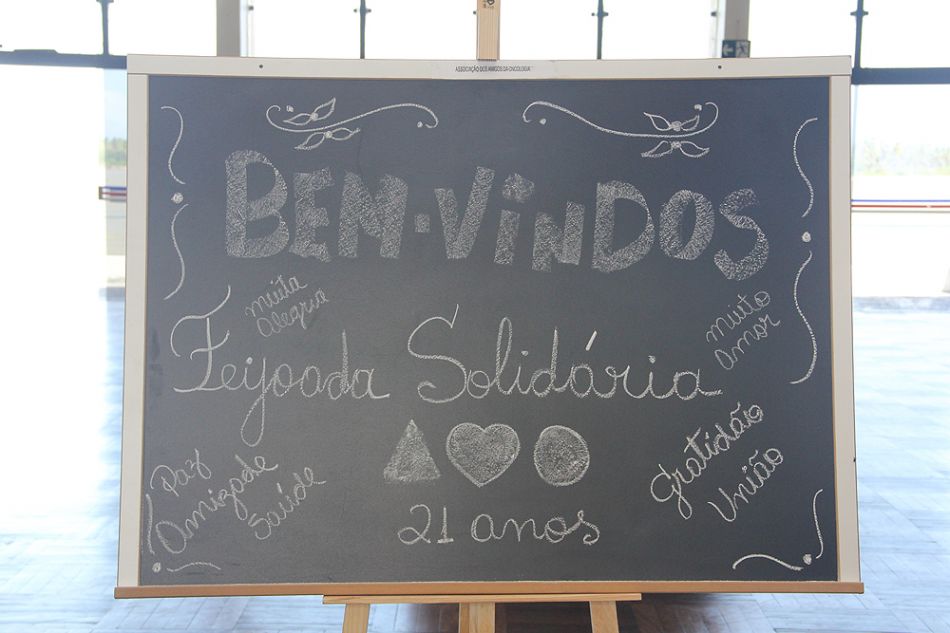 ASSOCIAÇÃO DOS AMIGOS DA ONCOLOGIA
BEM-VINDOS
muita
alegria
muito
amor
Feijoada Solidária
Paz
Amizade
Saúde
gratidão
União
21 anos